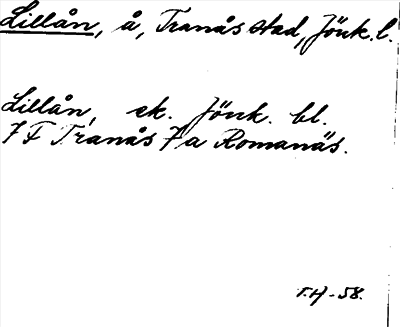 Lillån, å, Tranås stad, Jönk. l.
Lillån, ek. Jönk. bl.
7 F Tranås 7 a Romanäs.
T.H -58.